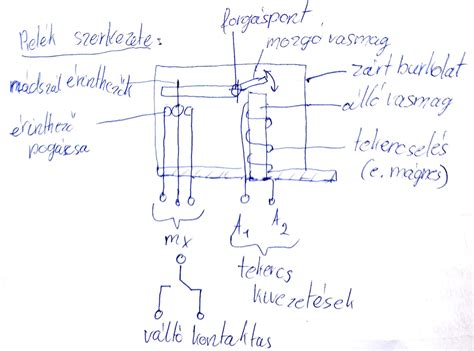 Relék szerkezete:
forgáspont
mozgó vasmag
zárt burkolat
nádszál érintkezők
álló vasmag
érintkező
pogácsa
tekercselés
(e. mágnes)
A1
A2
mx
tekercs
kivezetések
váltó kontaktus